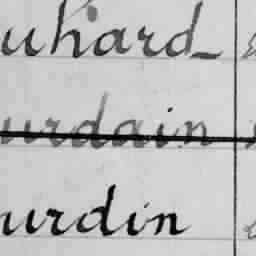 uhard
urdain
urdin